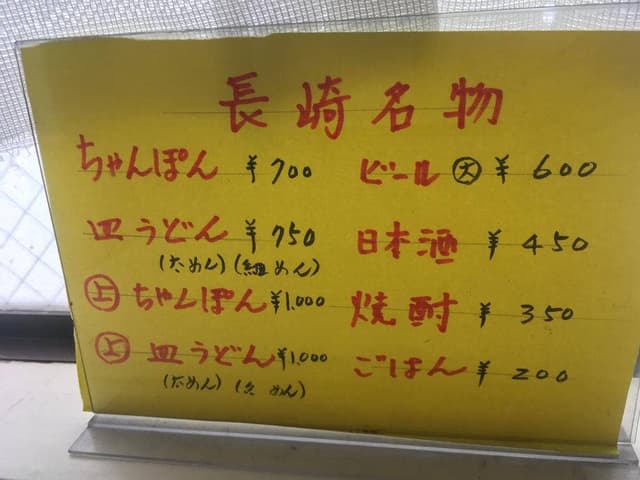 長崎名物
ちゃんぽん ¥700
皿うどん ¥750
(太めん)(細めん)
㊤ちゃんぽん¥1,000
㊤ 皿うどん¥1,000
(太めん) ( めん)
ビール 大 ¥600
日本酒 ¥450
焼酎 ¥350
ごはん ¥200